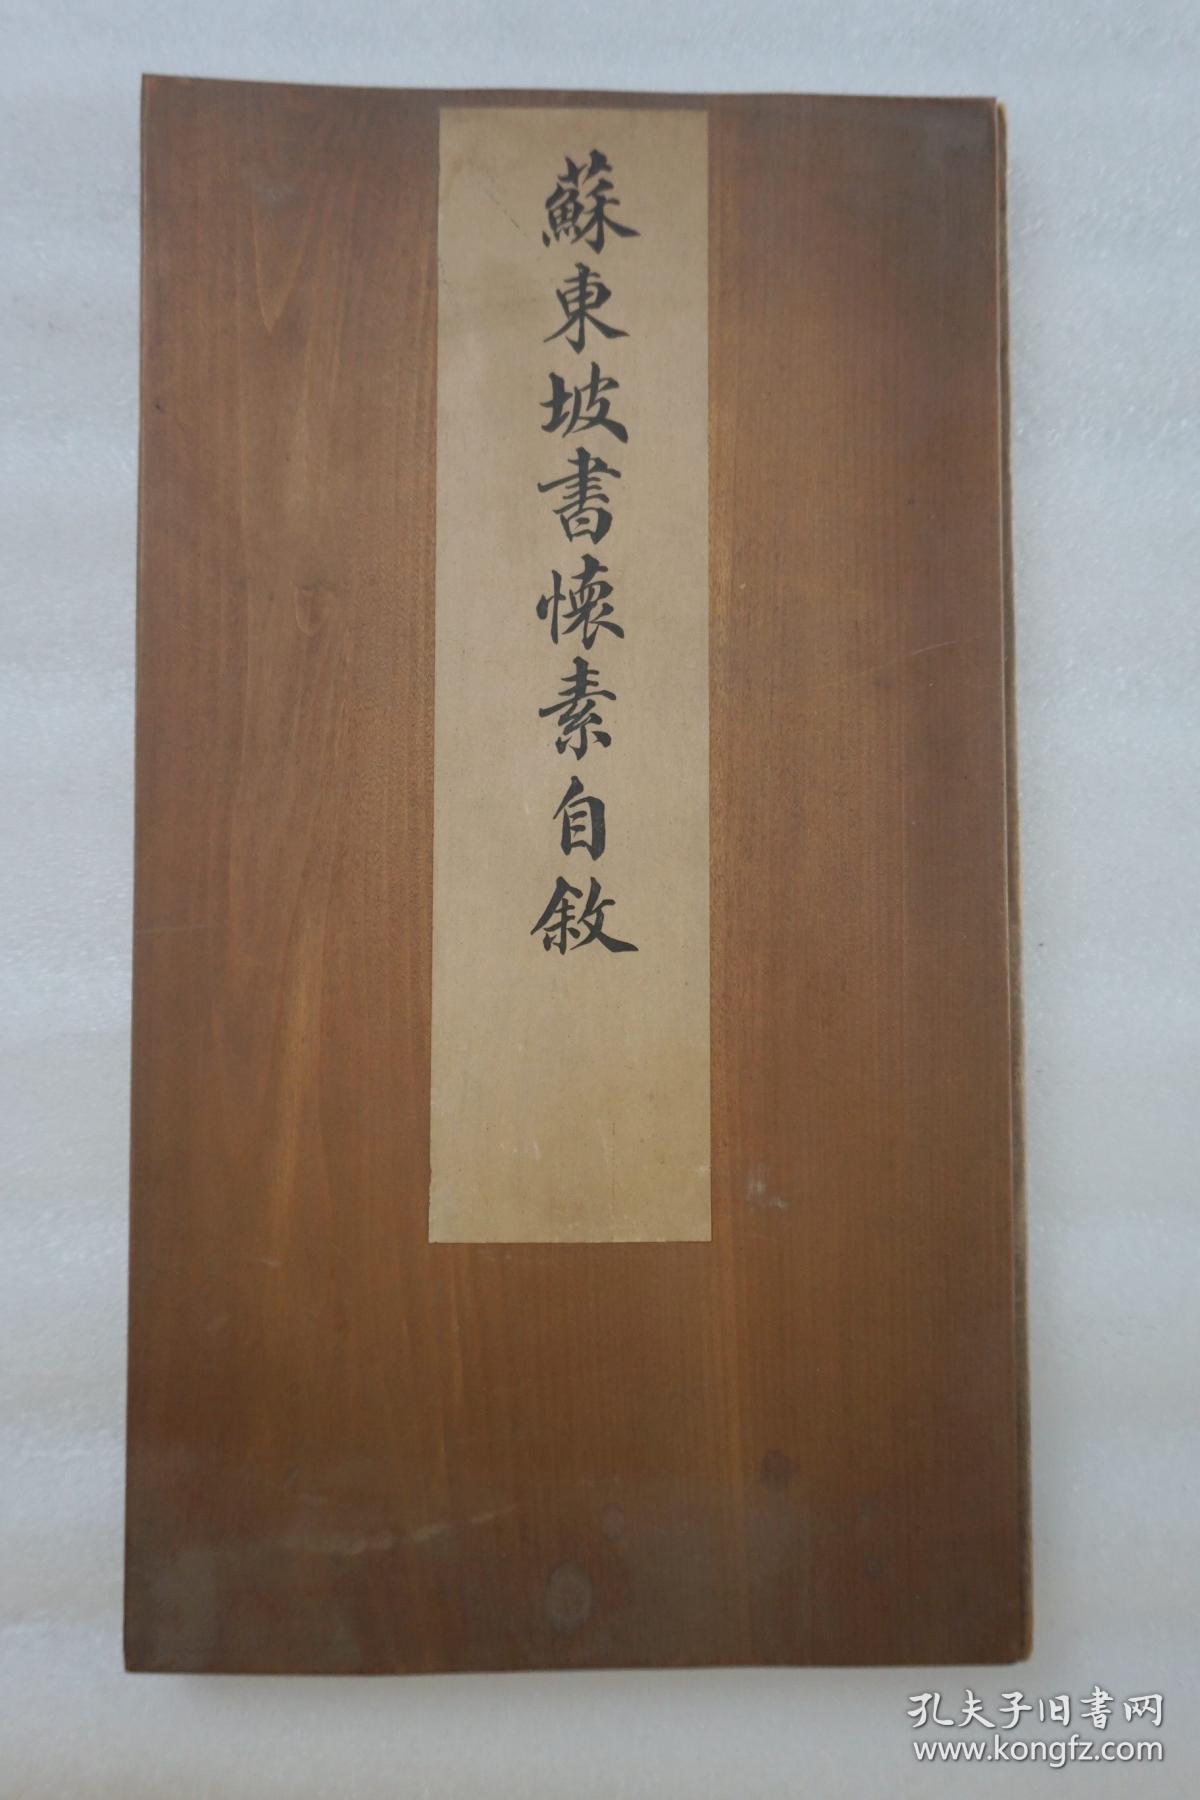 蘇東坡書懷素自敘
孔夫子旧书网
www.kongfz.com